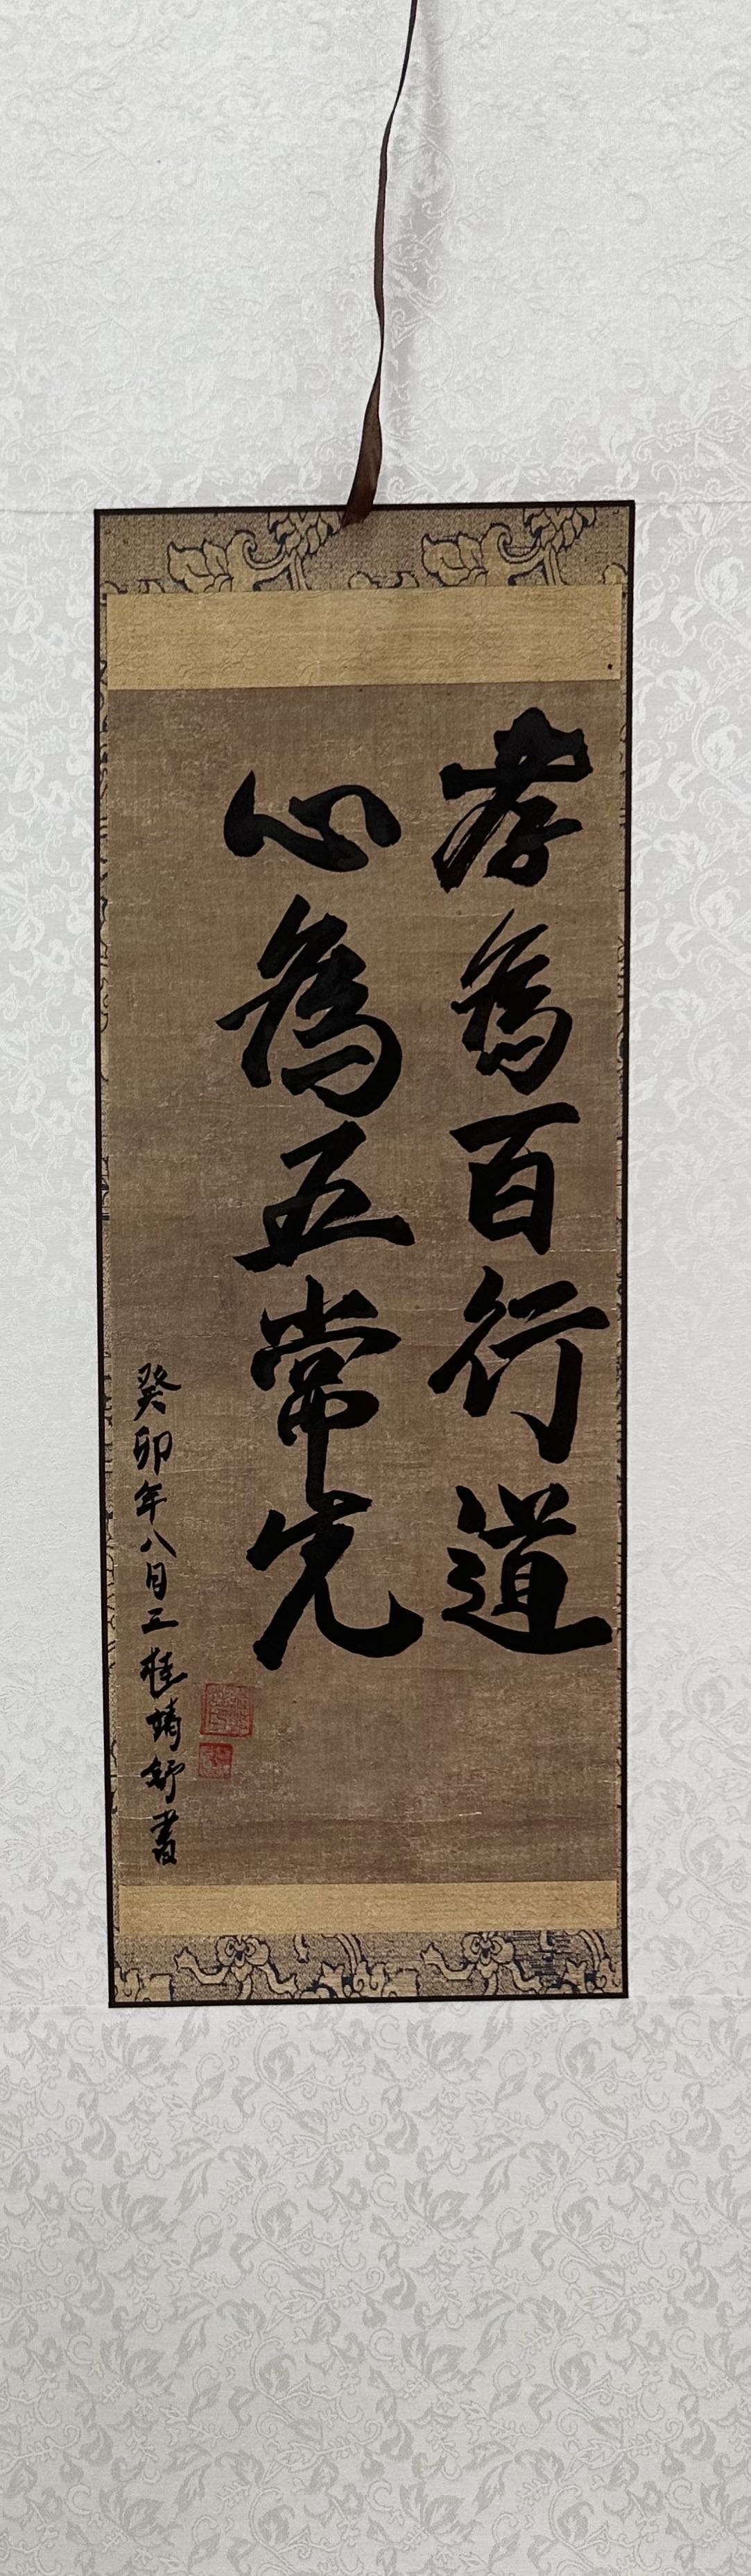 孝為百行道
心為五常先
癸卯年八月王桂靖舒書